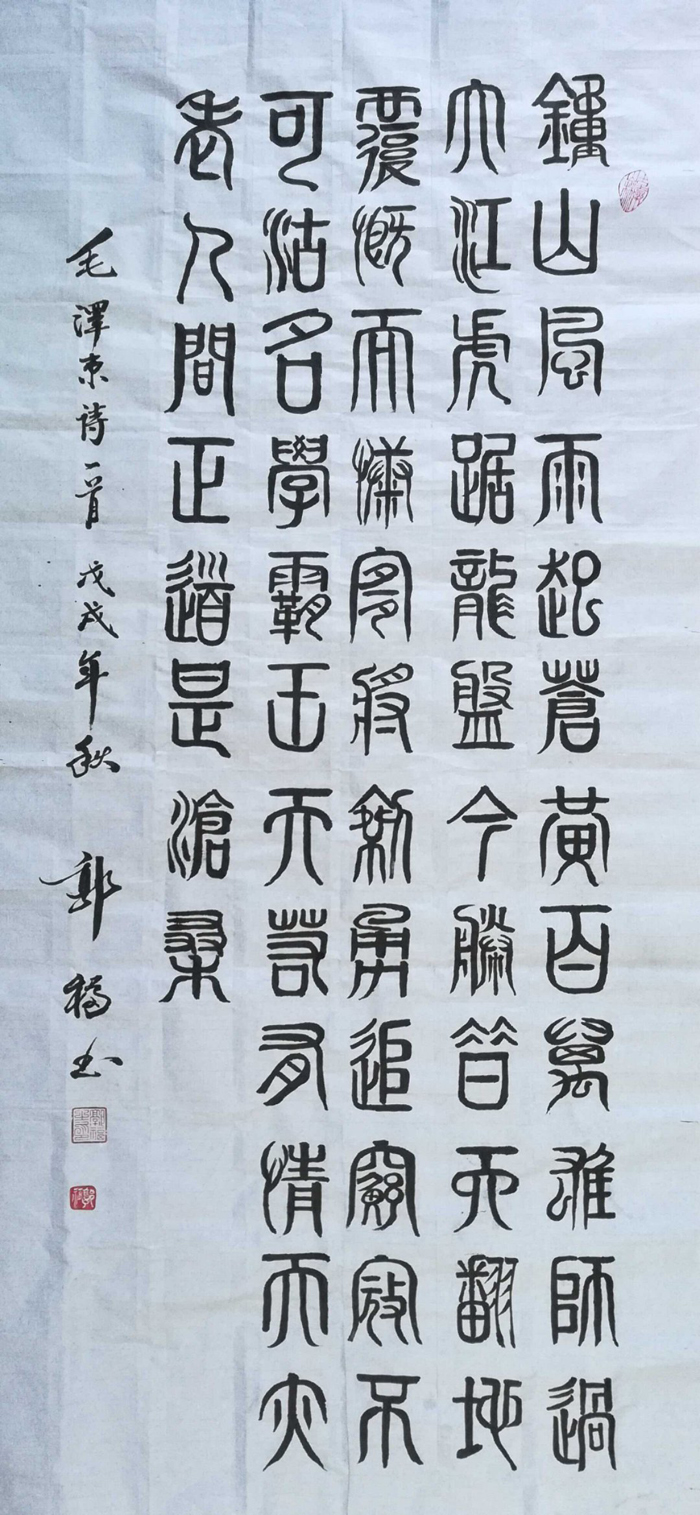 鐘山風雨起蒼黃百萬雄師過
大江虎踞龍盤今勝昔天翻地
覆慨而慷宜將剩勇追窮寇不
可沽名學霸王天若有情天亦
老人間正道是滄桑
毛澤東诗一首 戊戌年秋 郭 书